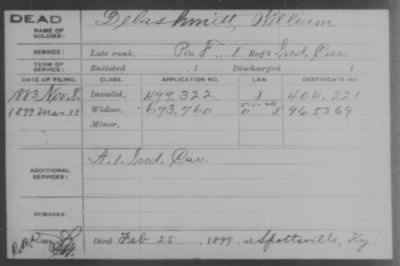 DEAD
NAME OF SOLDIER:
Delashmitt, William
SERVICE:
Late rank, Co. F, 1 Reg't Ind. Cav.
TERM OF SERVICE:
Enlisted , 1 Discharged , 1
DATE OF FILING. CLASS. APPLICATION NO. LAW. CERTIFICATE NO.
1883 Nov. 8. Invalid, 499,322 404,221
1899 Mar 11 Widow, 693,760 965369
Minor,
ADDITIONAL SERVICES:
A. 1. Ind. Cav.
REMARKS:
Died Feb 25, 1899, at Spottsville, Ky